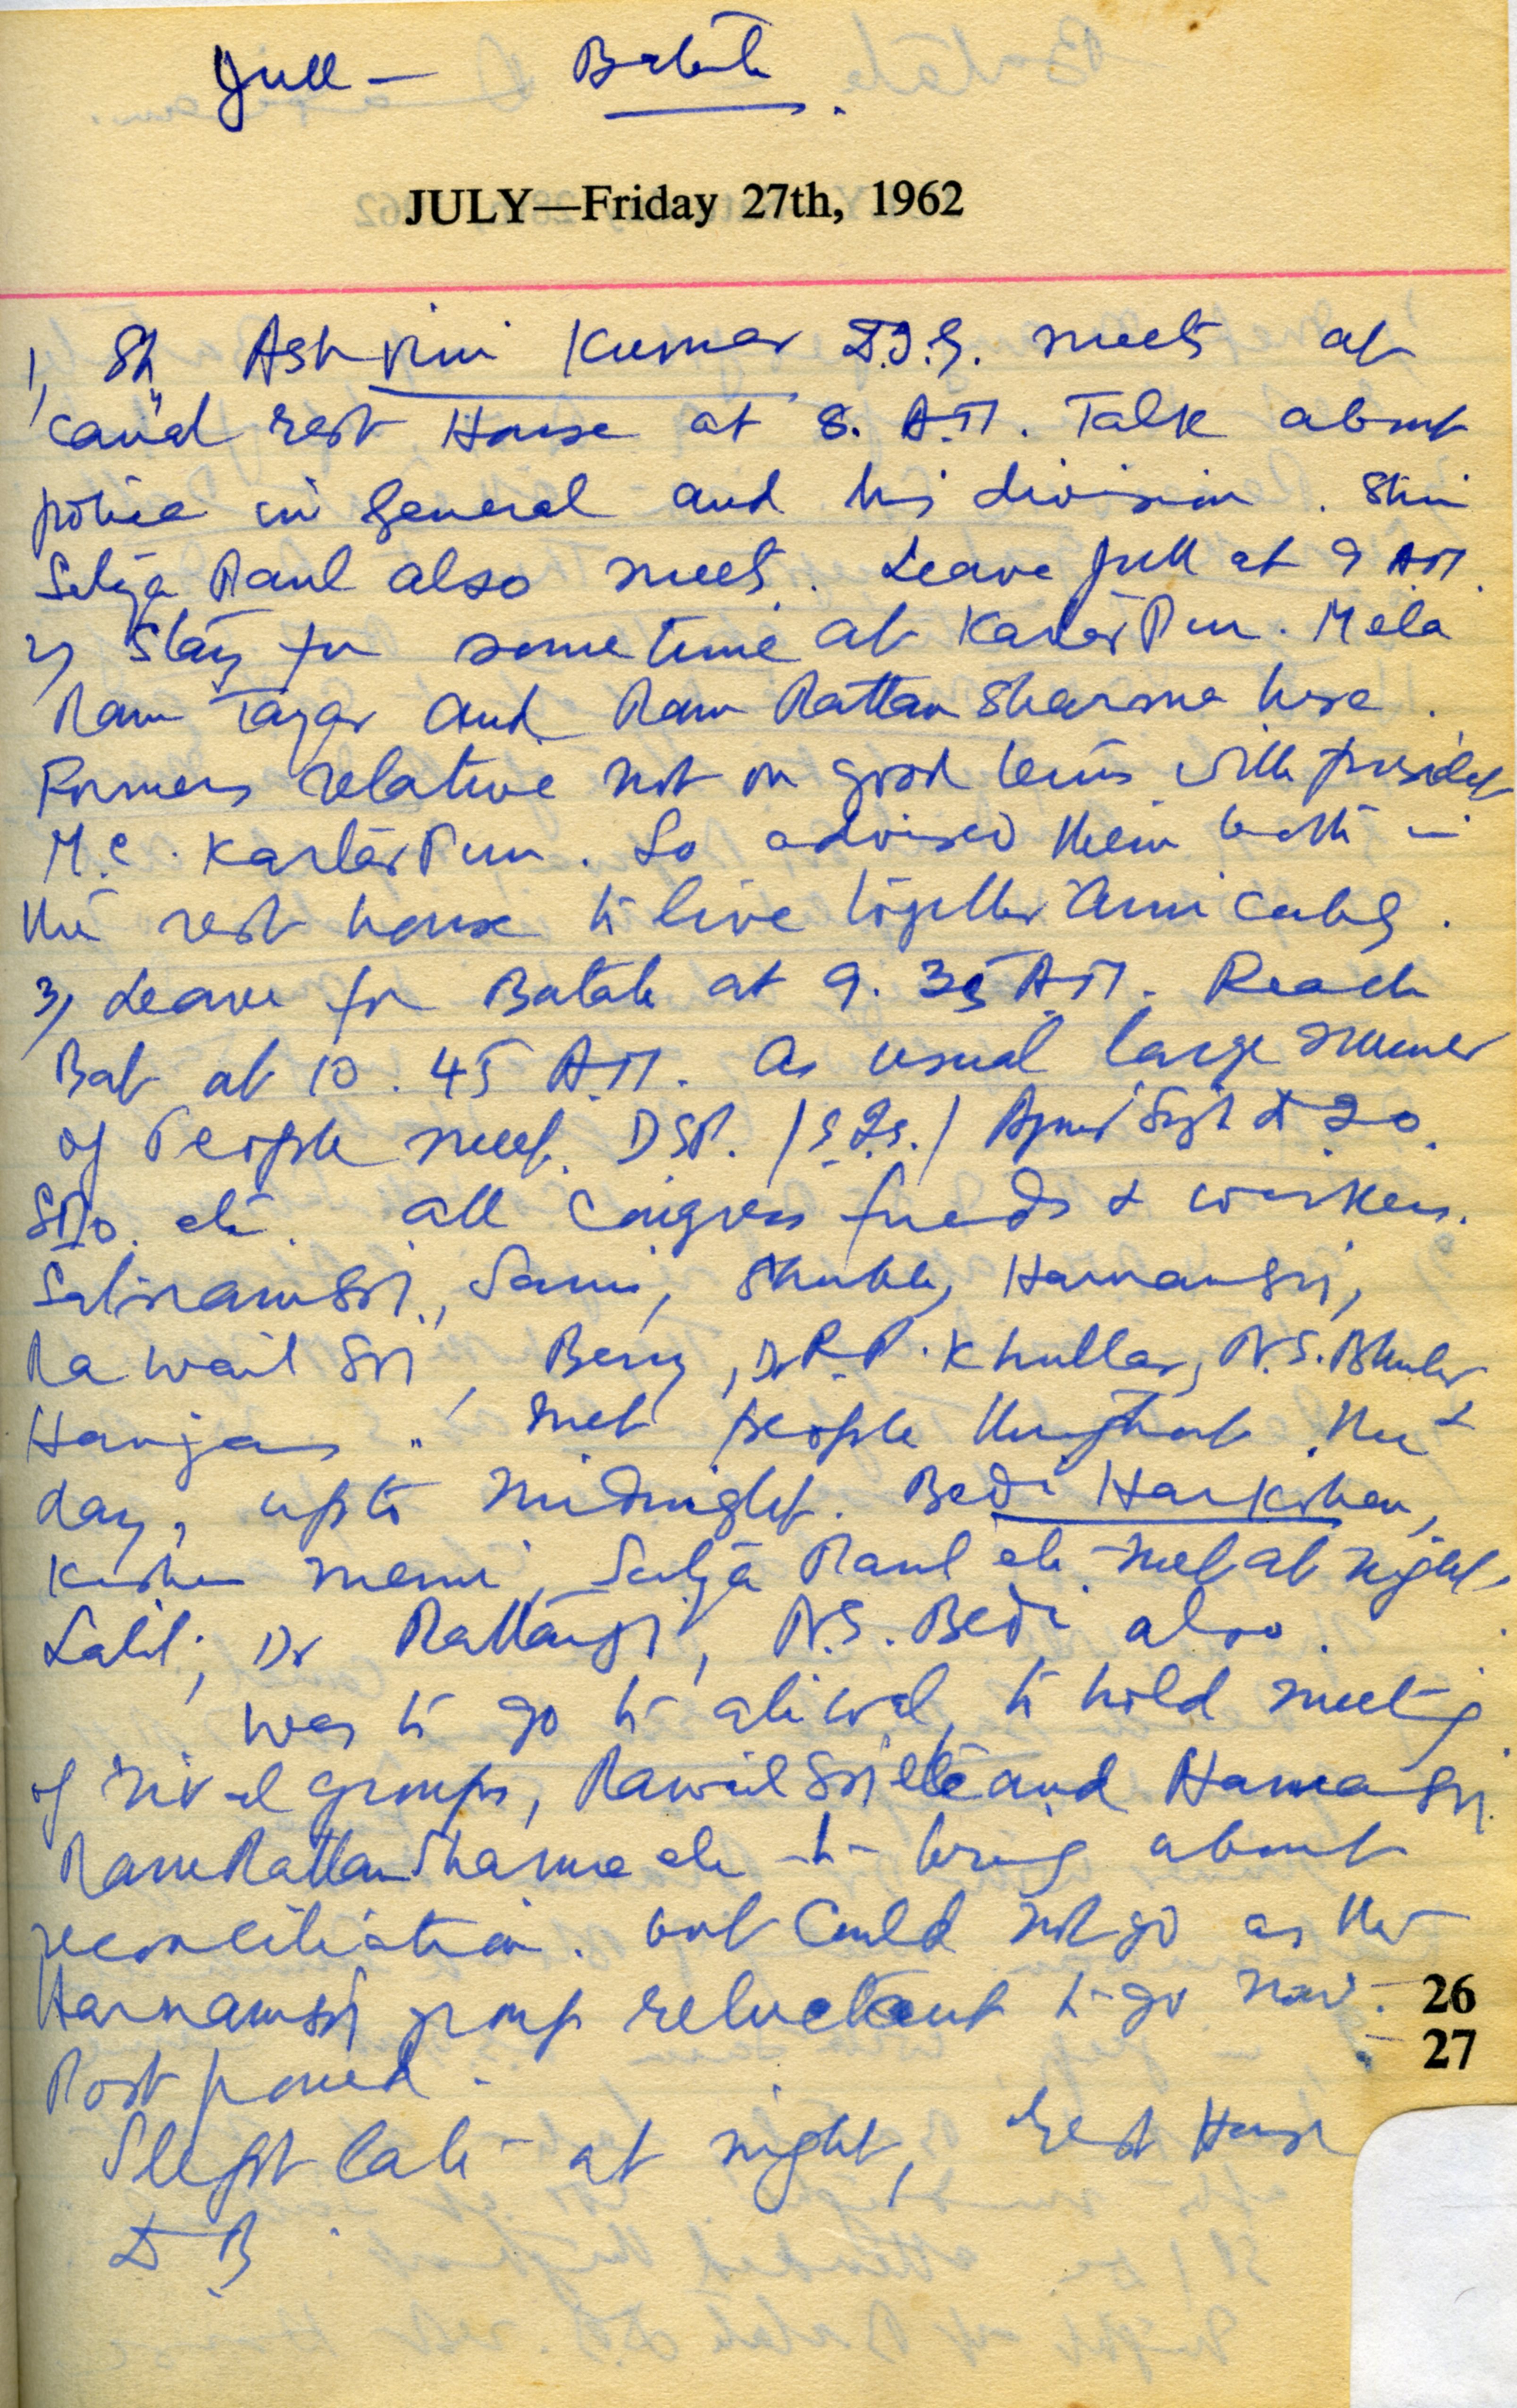 Jull — Batala.
JULY—Friday 27th, 1962
1, Sh Ashvini Kumar D.I.G. meets at
canal rest House at 8. A.M. Talk about
police in general and his division. Shri
Setya Paul also meets. Leave Jull at 9 AM.
2, Stay for some time at KartarPur. Mela
Ram Tayar and Ram Rattan Sharma here.
Formers relative not on good terms with president
M.C. KartarPur. So advised them both in
the rest house to live together amicably.
3, Leave for Batala at 9.35 A.M. Reach
Bat at 10.45 A.M. As usual large numer
of People meet. DSP.
SDO. etc. all Congress friends & workers.
SatnamSn, Sami, Harnam Sn,
Rawail Sn, Bery, Dr R.P. Khullar, N.S. Bhuler &
Harijans. Met people throughout the
day, upto midnight. Bedi Harkishan,
Setya Paul etc met at night.
Lalit, Dr , N.S. Bedi also.
was to go to aliwal, to hold meeting
of rival groups, Rawail Sn etc and Harnam Sn
Ram Rattan Sharma etc to bring about
reconciliation. but could not go as the
Harnam Sn group reluctant to go now. 26
Postponed. 27
Slept late at night, rest House
D B